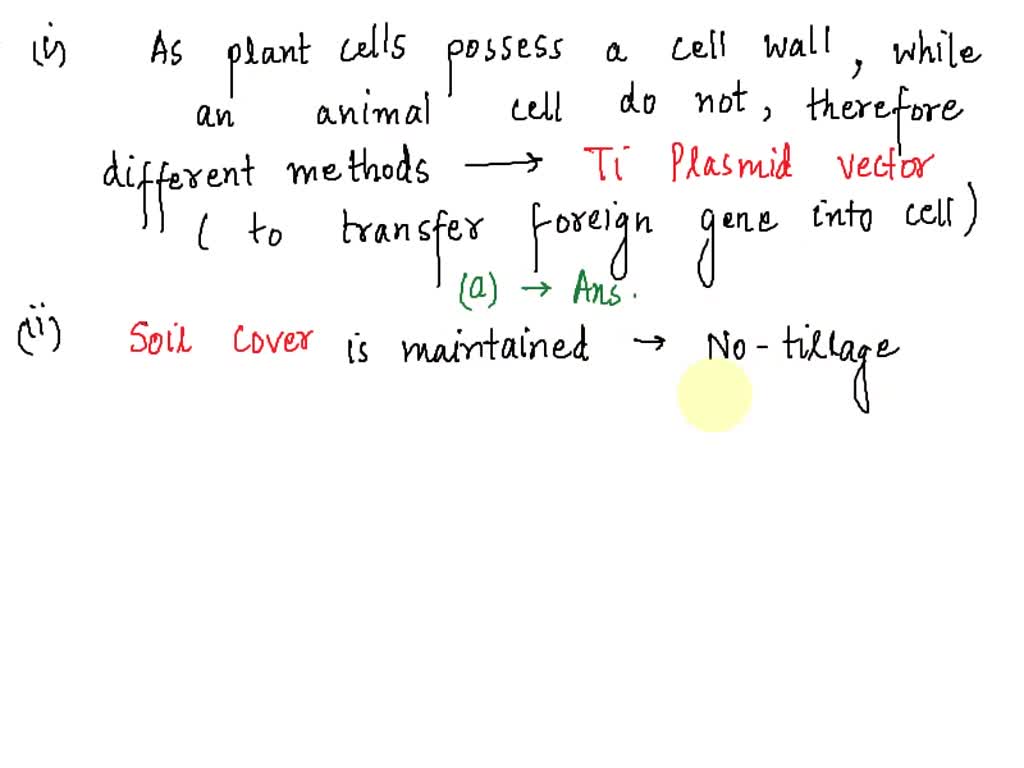 (i) As plant cells possess a cell wall, while
an animal cell do not, therefore
different methods → Ti Plasmid vector
( to transfer foreign gene into cell)
(a) → Ans.
(ii) Soil cover is maintained → No-tillage